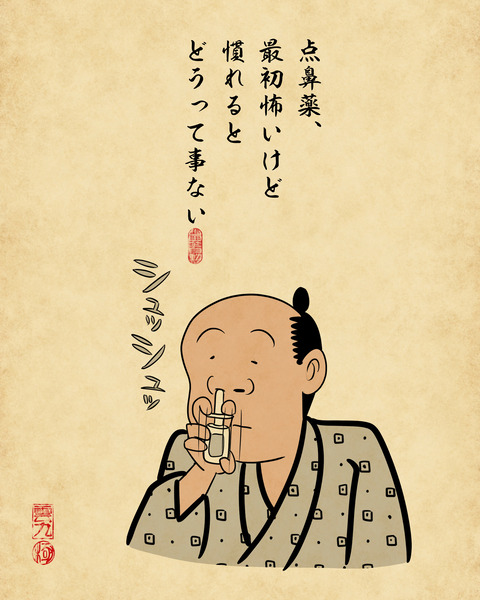 点鼻薬、
最初怖いけど
慣れると
どうって事ない
シュッシュッ